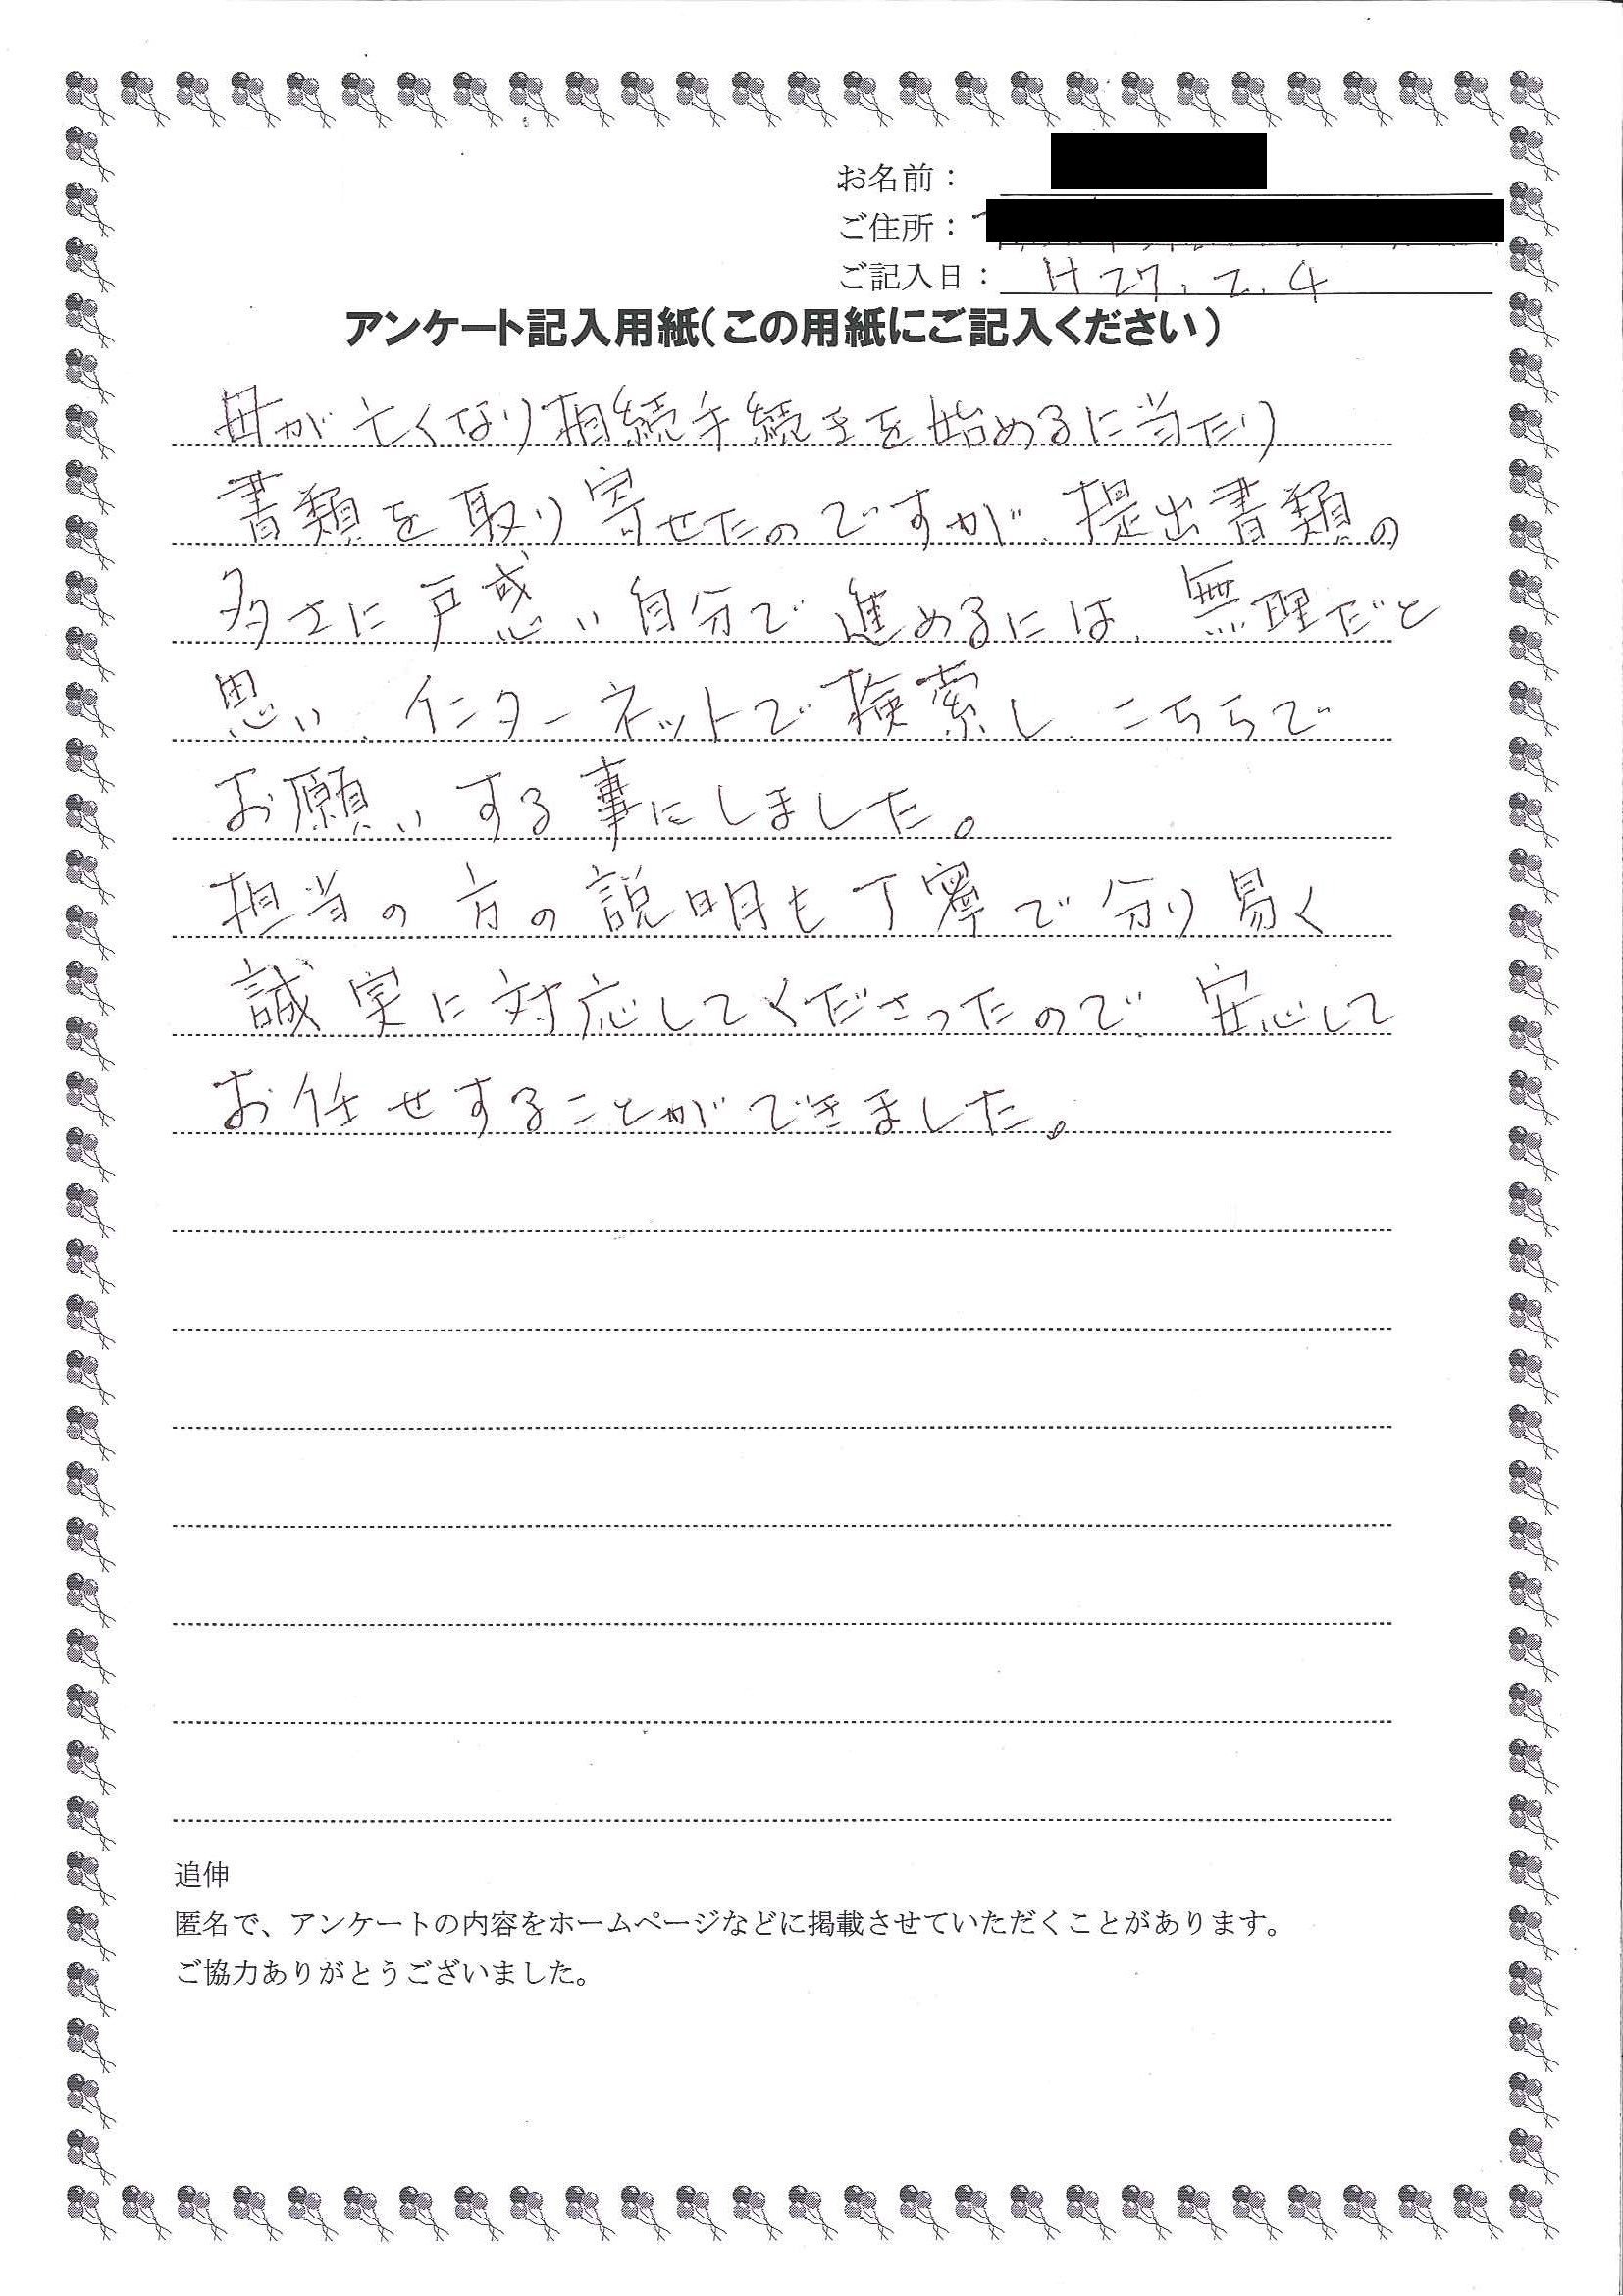 お名前：
ご住所：
ご記入日： H27.2.4
アンケート記入用紙（この用紙にご記入ください）
母が亡くなり相続手続きを始めるに当たり
書類を取り寄せたのですが、提出書類の
多さに戸惑い自分で進めるには、無理だと
思い、インターネットで検索し、こちらで
お願いする事にしました。
担当の方の説明も丁寧で分り易く
誠実に対応してくださったので、安心して
お任せすることができました。
追伸
匿名で、アンケートの内容をホームページなどに掲載させていただくことがあります。
ご協力ありがとうございました。